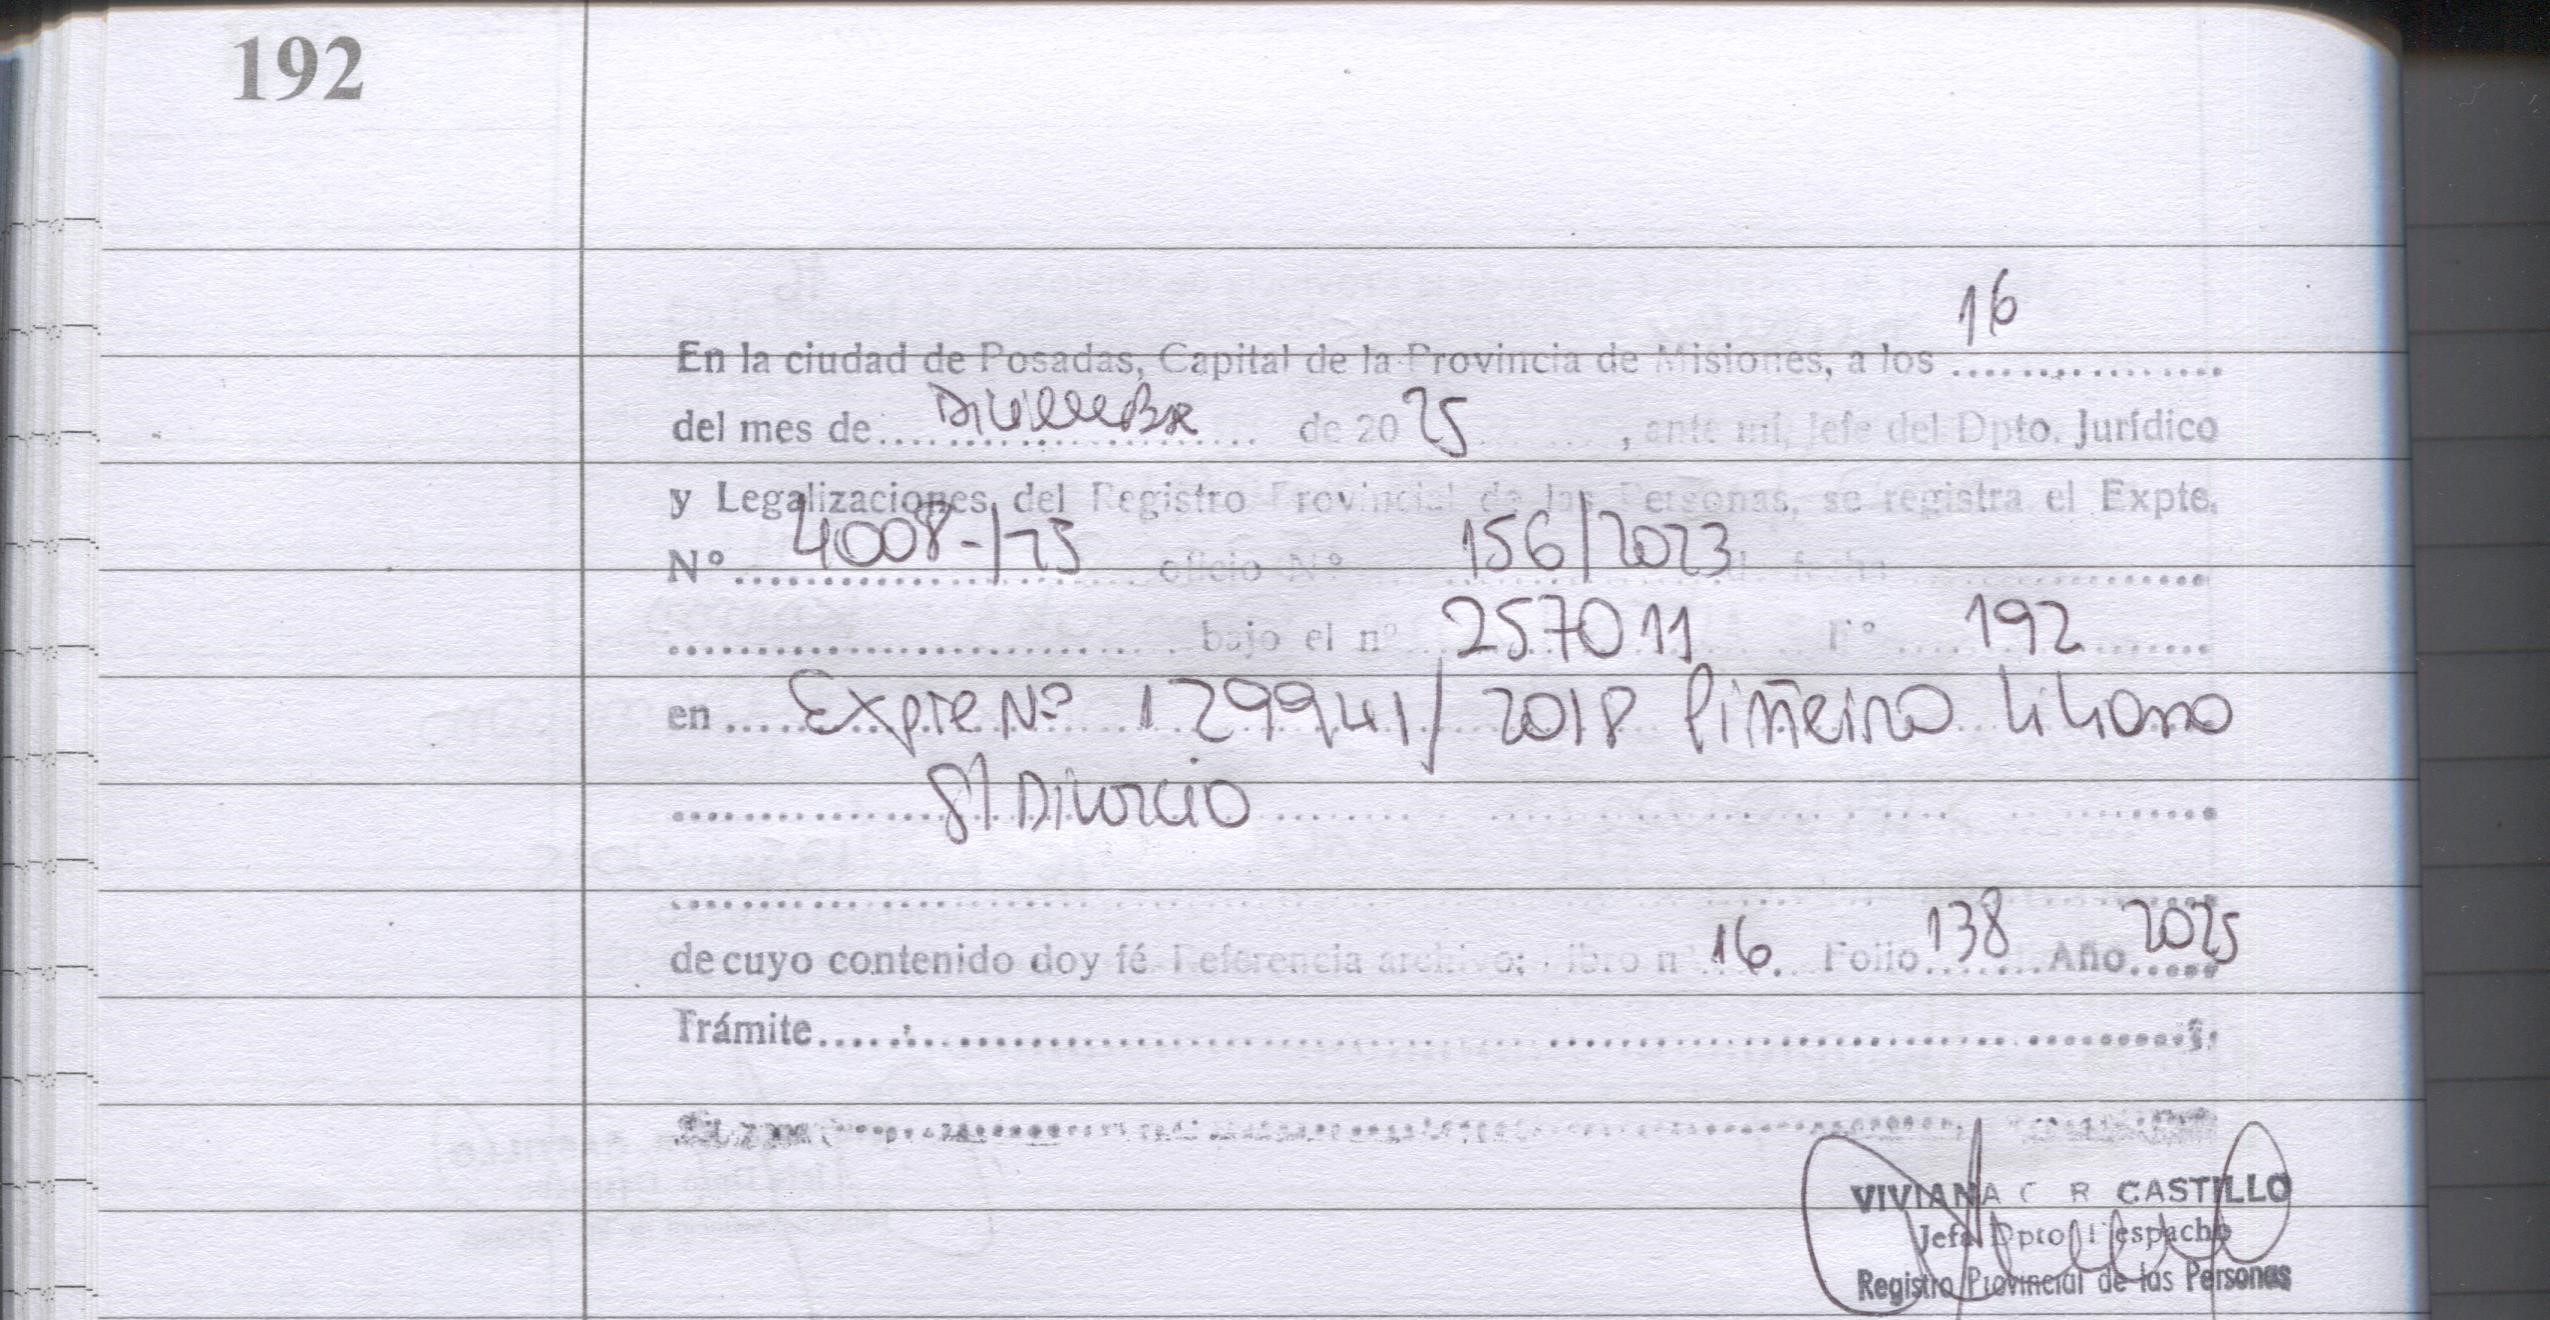 192
16
En la ciudad de Posadas, Capital de la Provincia de Misiones, a los ...............
del mes de.... Diciembre .... de 20 25 ........, ante mí, Jefe del Dpto. Jurídico
y Legalizaciones del Registro Provincial de las Personas, se registra el Expte.
Nº.... 4008-/25 .... oficio Nº 156/2023 de fecha ........
........ bajo el nº 257011 Fº 192 ........
en .... Expte Nº 129941/2018 Piñeiro Liliana
S/ Divorcio
de cuyo contenido doy fé Referencia archivo: Libro nº 16 Folio 138 Año 2025
Trámite........
VIVIANA C R CASTILLO
Jefa Dpto Despacho
Registro Provincial de las Personas